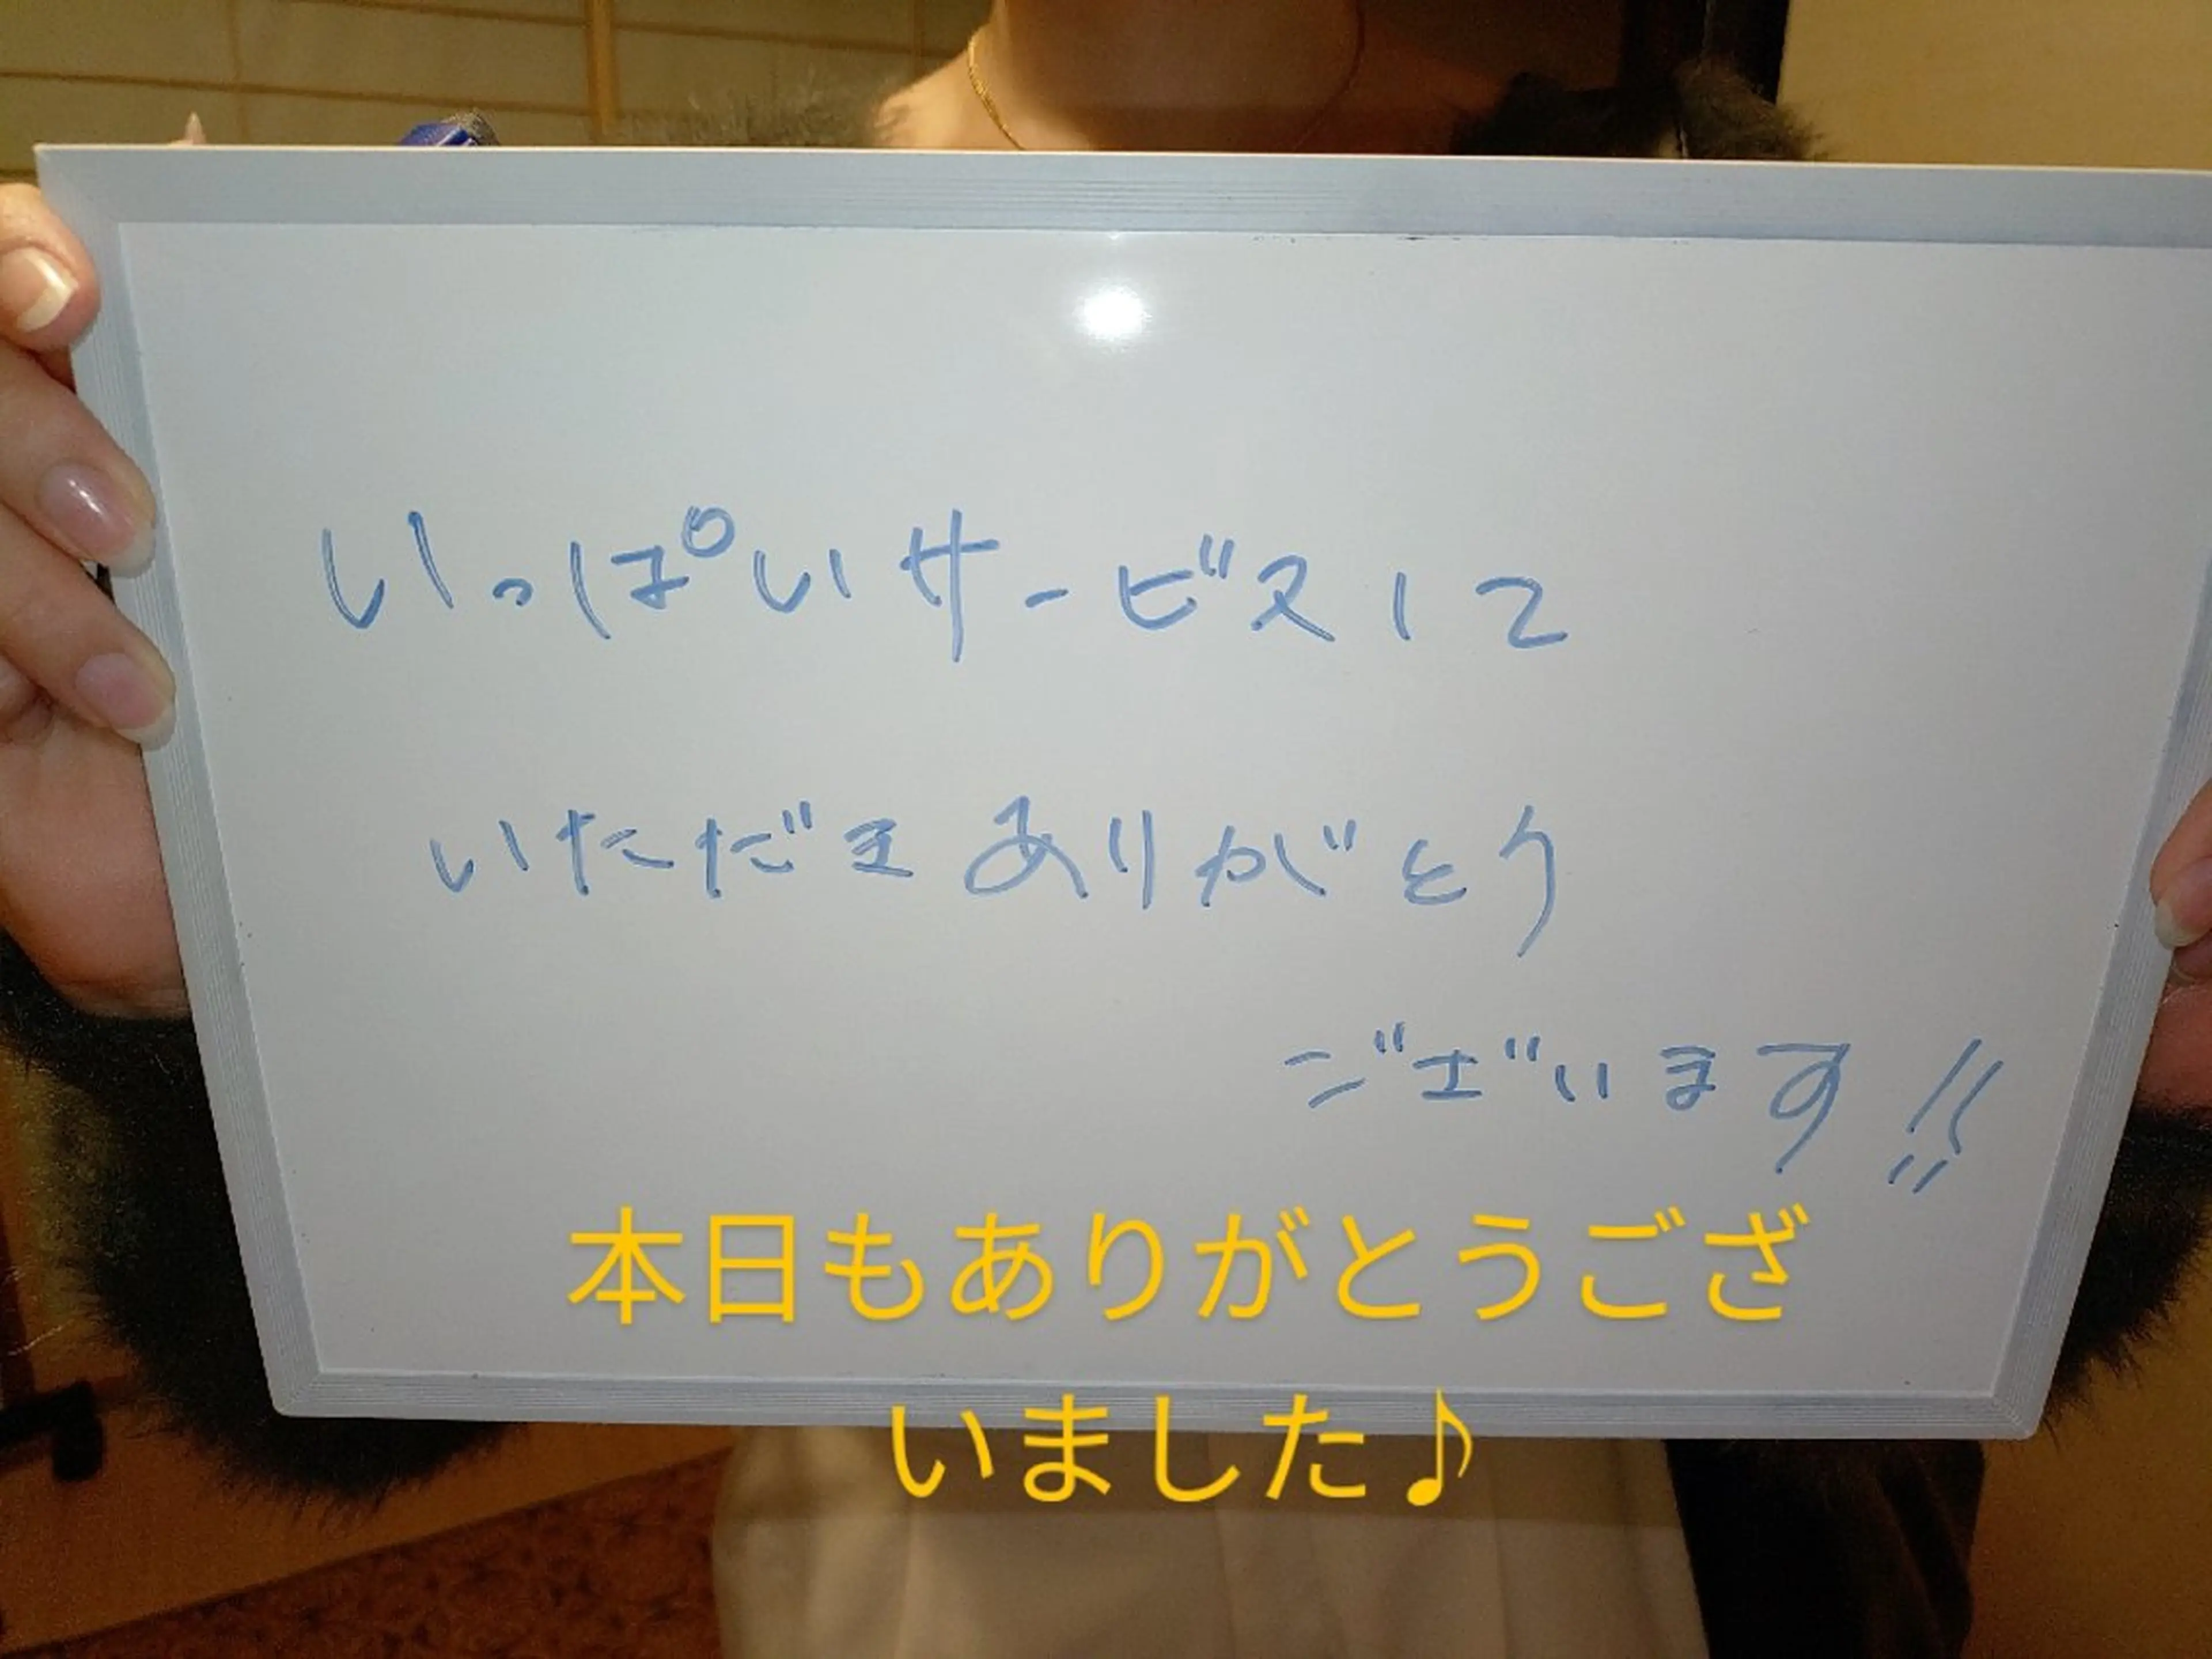 いっぱいサービスして
いただきありがとう
ございます!!
本日もありがとうござ
いました♪